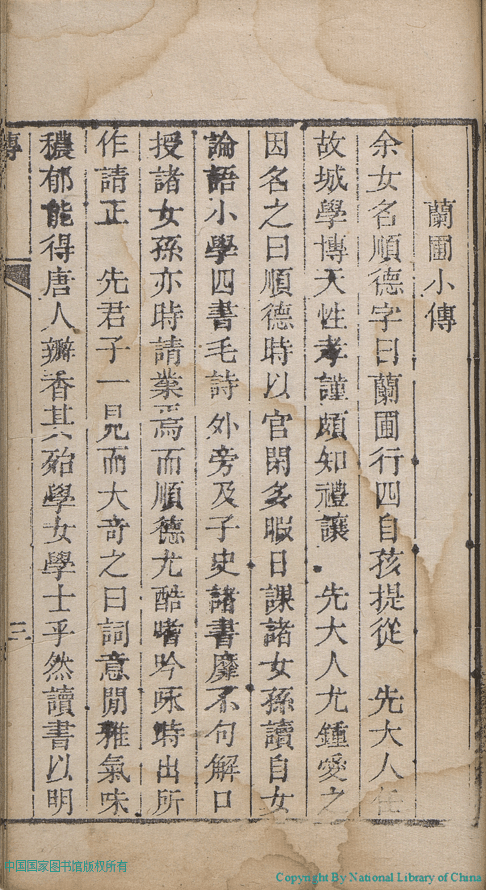 蘭圃小傳
余女名順德字曰蘭圃行四自孩提從　先大人任
故城學博天性孝謹頗知禮讓　先大人尤鍾愛之
因名之曰順德時以官閑多暇日課諸女孫讀自女
論語小學四書毛詩外旁及子史諸書靡不句解口
授諸女孫亦時請業焉而順德尤酷嗜吟咏時出所
作請正　先君子一見而大奇之曰詞意閒雅氣味
穠郁能得唐人瓣香其殆學女學士乎然讀書以明
傳
三
中国国家图书馆版权所有
Copyright By National Library of China